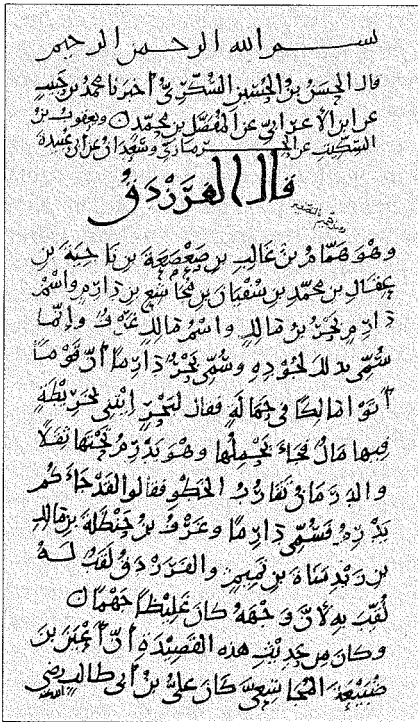 بسم الله الرحمن الرحيم
قال الحسن بن الحسين السُّكَّرِيّ أخبرنا محمد بن حبيب
عن ابن الأعرابيّ عن المُفَضَّل بن محمد ويعقوب بن
السِّكِّيت عن وسَعْدَان عن أبي عبيدة
قال الفَرَزْدَقُ
وهو هَمَّامُ بنُ غَالِبِ بنِ صَعْصَعَةَ بنِ نَاجِيَةَ بنِ
عِقَالِ بنِ محمّدِ بنِ سُفْيَانَ بنِ مُجَاشِعِ بنِ دَارِمٍ واسْمُ
دَارِمٍ بَحْرُ بنُ مَالِكٍ واسْمُ مَالِكٍ عَرْفٌ وإنّما
سُمِّيَ بذلك لِجُودِهِ وسُمِّيَ بَحْرٌ دَارِمًا أنَّ قَوْمًا
أتَوْا مَالِكًا في حَمَالَةٍ فقال لِبَحْرٍ ائْتِنِي بِخَرِيطَةٍ
فيها مَالٌ فَجَاءَ يَحْمِلُهَا وهو يَدْرِمُ تَحْتَهَا ثِقَلًا
والدَّرَمَانُ تَقَارُبُ الخَطْوِ فقالوا لقد جَاءَكُم
يَدْرِمُ فَسُمِّيَ دَارِمًا وعَرْفُ بنُ حَنْظَلَةَ بنِ مَالِكِ
بنِ زَيْدِ مَنَاةَ بنِ تَمِيمٍ والفَرَزْدَقُ لَقَبٌ لَهُ
لُقِّبَ بِهِ لأنَّ وَجْهَهُ كان غَلِيظًا جَهْمًا
وكان مِن حَدِيثِ هذه القَصِيدَةِ أنَّ أَعْيَنَ بنَ
ضُبَيْعَةَ المُجَاشِعِيَّ كان عَلِيُّ بنُ أبي طالبٍ رضي الله عنه